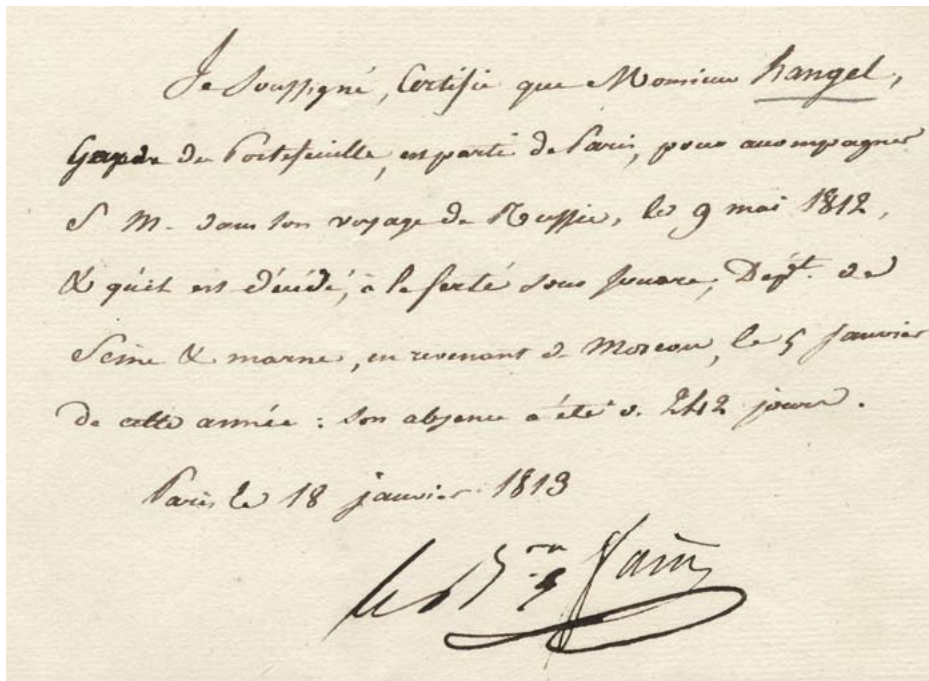 Je Soussigné, Certifie que Monsieur hangel,
Garde du Portefeuille, est parti de Paris, pour acompagner
S M. dans son voyage de Russie, le 9 mai 1812,
& qu'il est décédé, à la ferté sous Jouare, Dépt. de
Seine & marne, en revenant de Moscou, le 5 Janvier
de cette année : son absence a été de 242 jours.
Paris le 18 janvier 1813
le Bon Fain